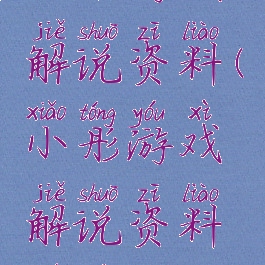 jiě shuō zī liào
解说资料(
xiǎo tóng yóu xì
小彤游戏
jiě shuō zī liào
解说资料